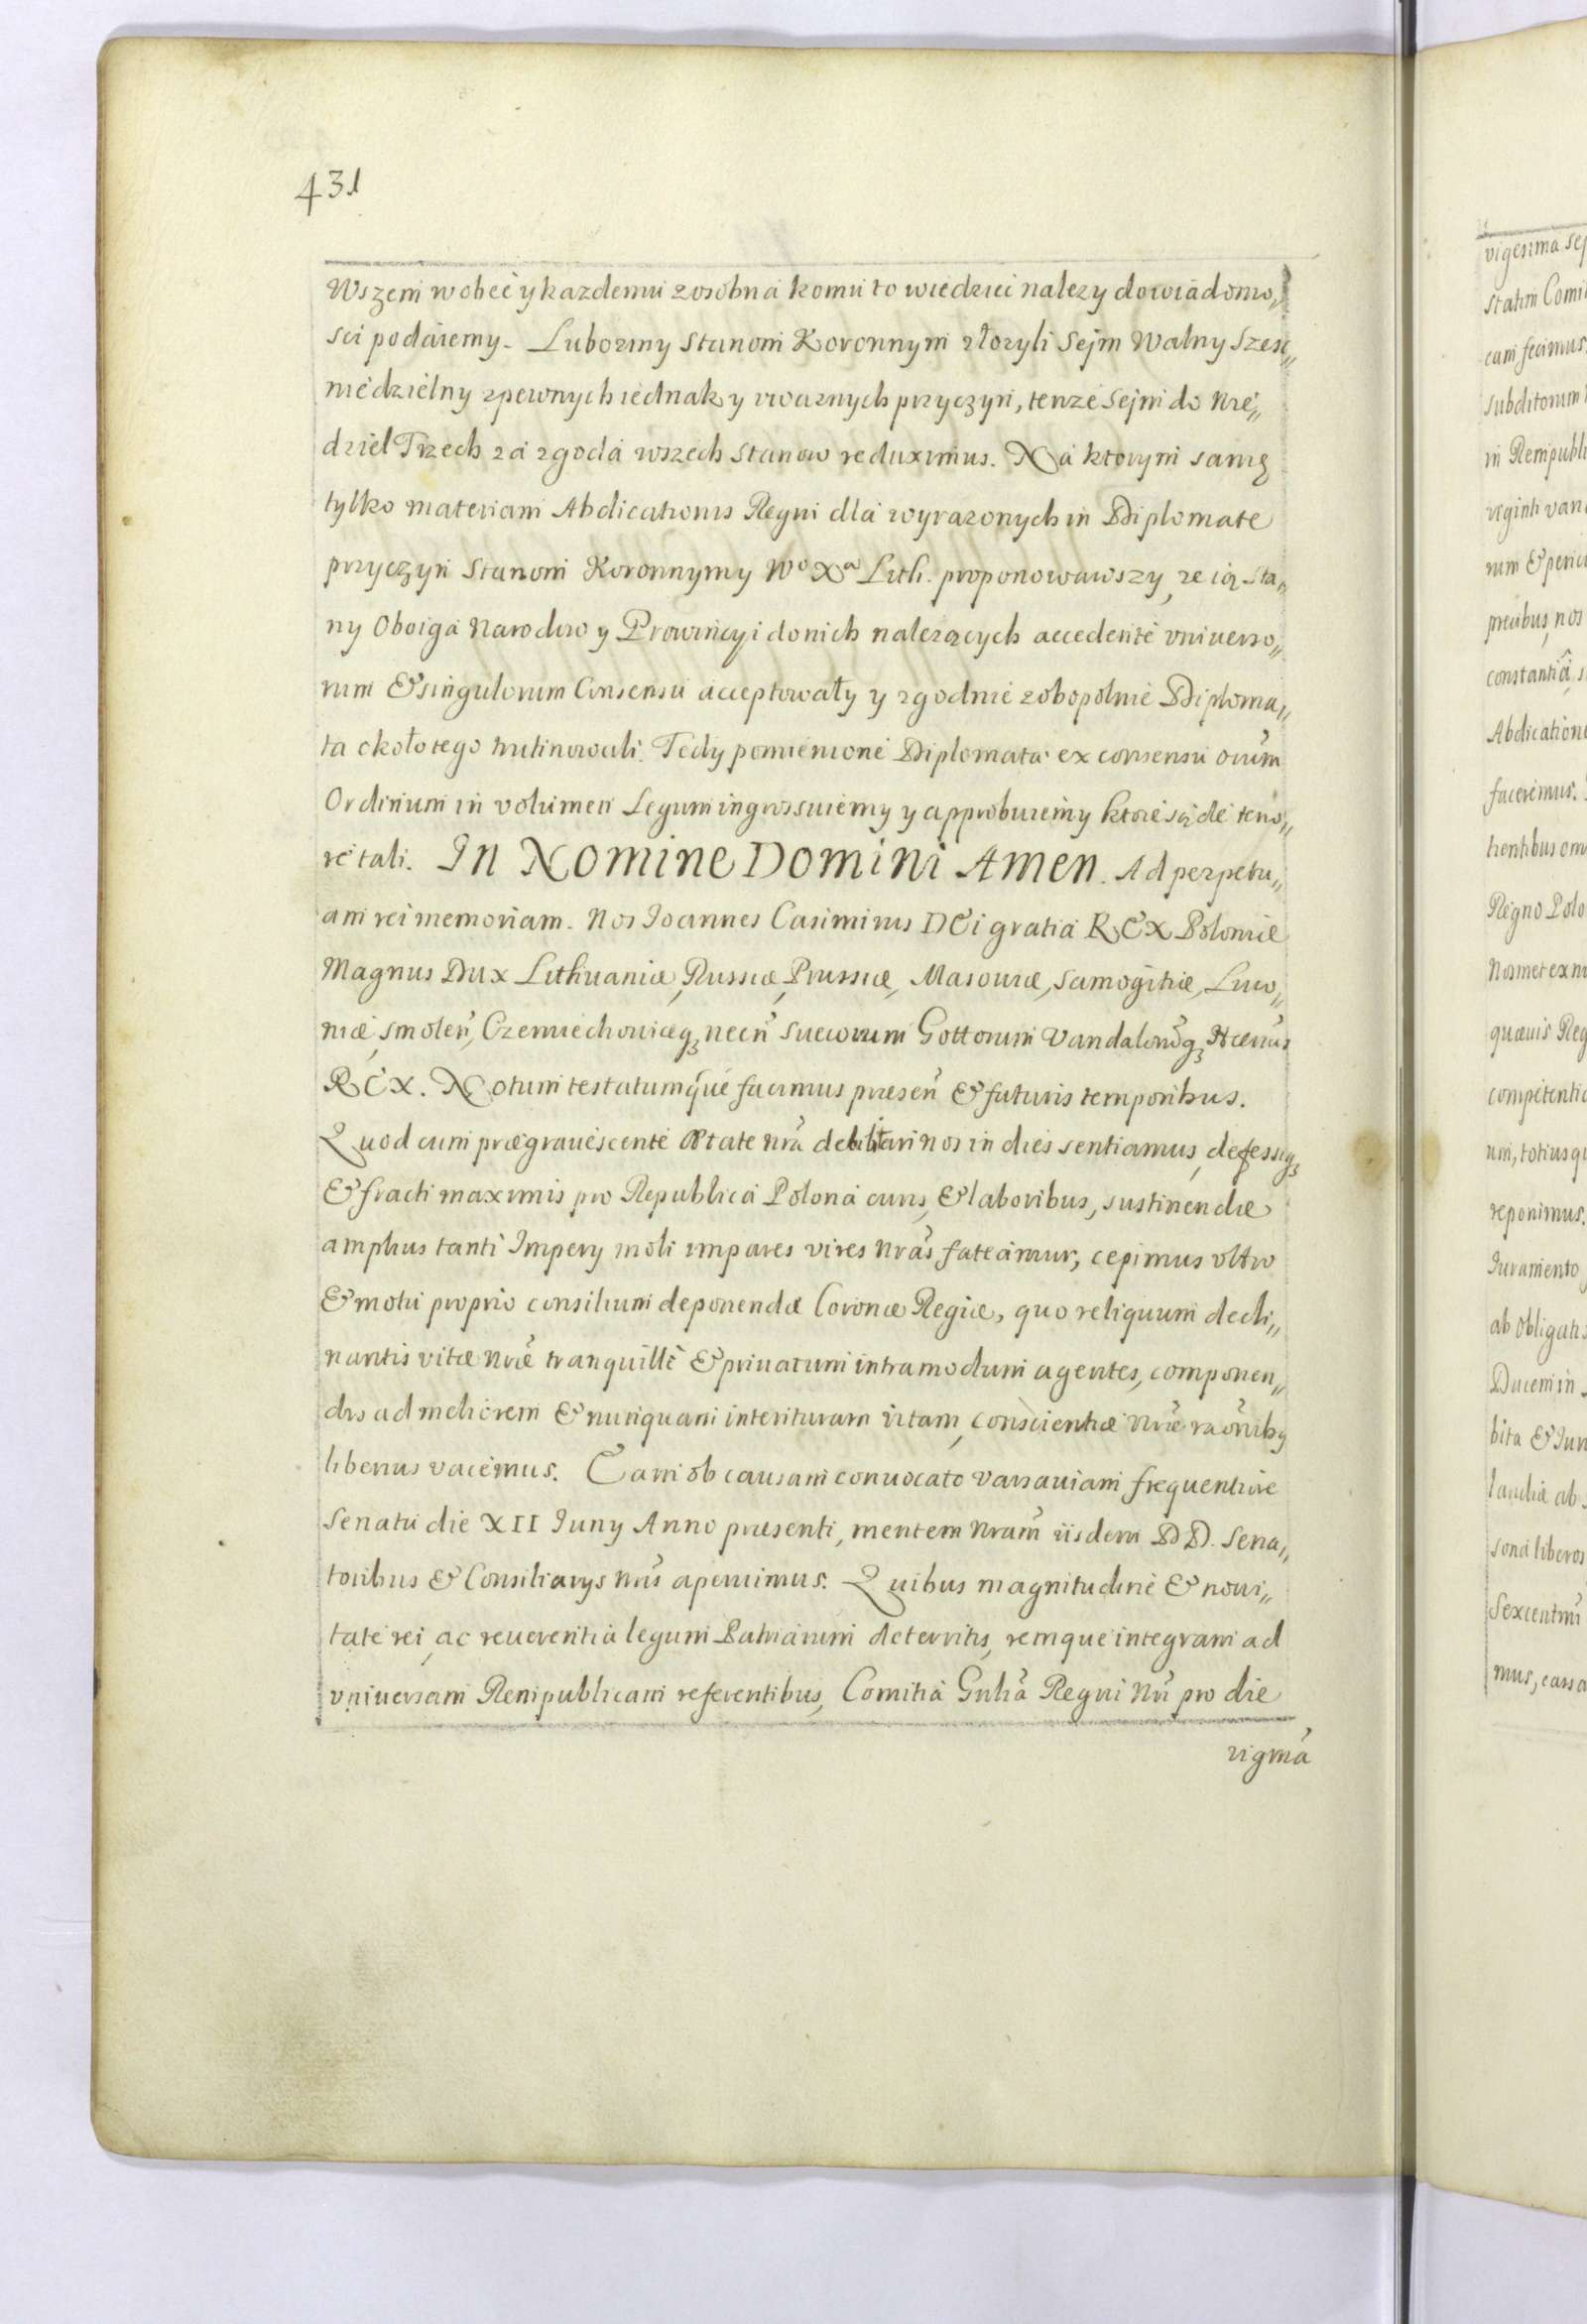 431
Wszem wobec y kazdemu zosobna komu to wiedziec nalezy do wiadomo„
sci podaiemy. Lubozmy Stanom Koronnym złozyli Sejm Walny Szesc„
niedzielny zpewnych iednak y waznych przyczyn, tenze Sejm do Nie„
dziel Trzech za zgodą wszech Stanow reduximus. Na ktorym samę
tylko materiam Abdicationis Regni dla wyrazonych in Diplomate
przyczyn Stanom Koronnym y Wo Xa Lith. proponowawszy, ze ią Sta„
ny Oboiga Narodow y Prowincyi do nich nalezących accedente vniverso„
rum & singulorum Consensu acceptowały y zgodnie zobopolnie Diploma„
ta około tego trutinowali. Tedy pomienione Diplomata ex consensu oium
Ordinum in volumen Legum ingrossuiemy y approbuiemy ktore są de teno„
re tali. In Nomine Domini Amen. Ad perpetu„
am rei memoriam. Nos Ioannes Casimirus DEi gratia REX Poloniæ
Magnus Dux Lithuaniæ, Russiæ, Prussiæ, Masouiæ, Samogitiæ, Liuo„
niæ, Smolen̄, Czerniechouiæq3 necn̄ Suecorum Gottorum Vandalorūq3 Hærius
REX. Notum testatumque facimus presen̄ & futuris temporibus.
Quod cum prægrauescente Ætate nr̄a debilitari nos in dies sentiamus, defessiq3
& fracti maximis pro Republica Polona curis, & laboribus, sustinendæ
amplius tanti Impery moli impares vires nr̄as fateamur, cepimus vltro
& motu proprio consilium deponendæ Coronæ Regiæ, quo reliquum decli„
nantis vitæ nr̄æ tranquillè & priuatum intra modum agentes, componen„
dis ad meliorem & nunquam interituram vitam, conscientiæ nr̄æ raōnibq
liberius vacemus. Eam ob causam conuocato Varsauiam frequentiore
Senatu die XII Iuny Anno presenti, mentem nram̄ iisdem DD. Sena„
toribus & Consiliarys nr̄is aperuimus. Quibus magnitudine & noui„
tate rei, ac reuerentia legum Patriarum deterritis, remque integram ad
vniversam Rempublicam referentibus, Comitia Gnlia Regni Nr̄i pro die
vigmā
vigesima sep
statim Comi
cum fecimus
subditorum
in Rempubli
viginti
rum & peric
precibus, nos
constantiâ, s
Abdication
faceremus.
Regno Polo
Nosmet ex n
quæuis Reg
competentia
um, totiusq
reponimus.
Iuramento
ab obligatis
Ducem in
bita & Iur
ab
sona liberos
Sexcentmi
mus, cassa